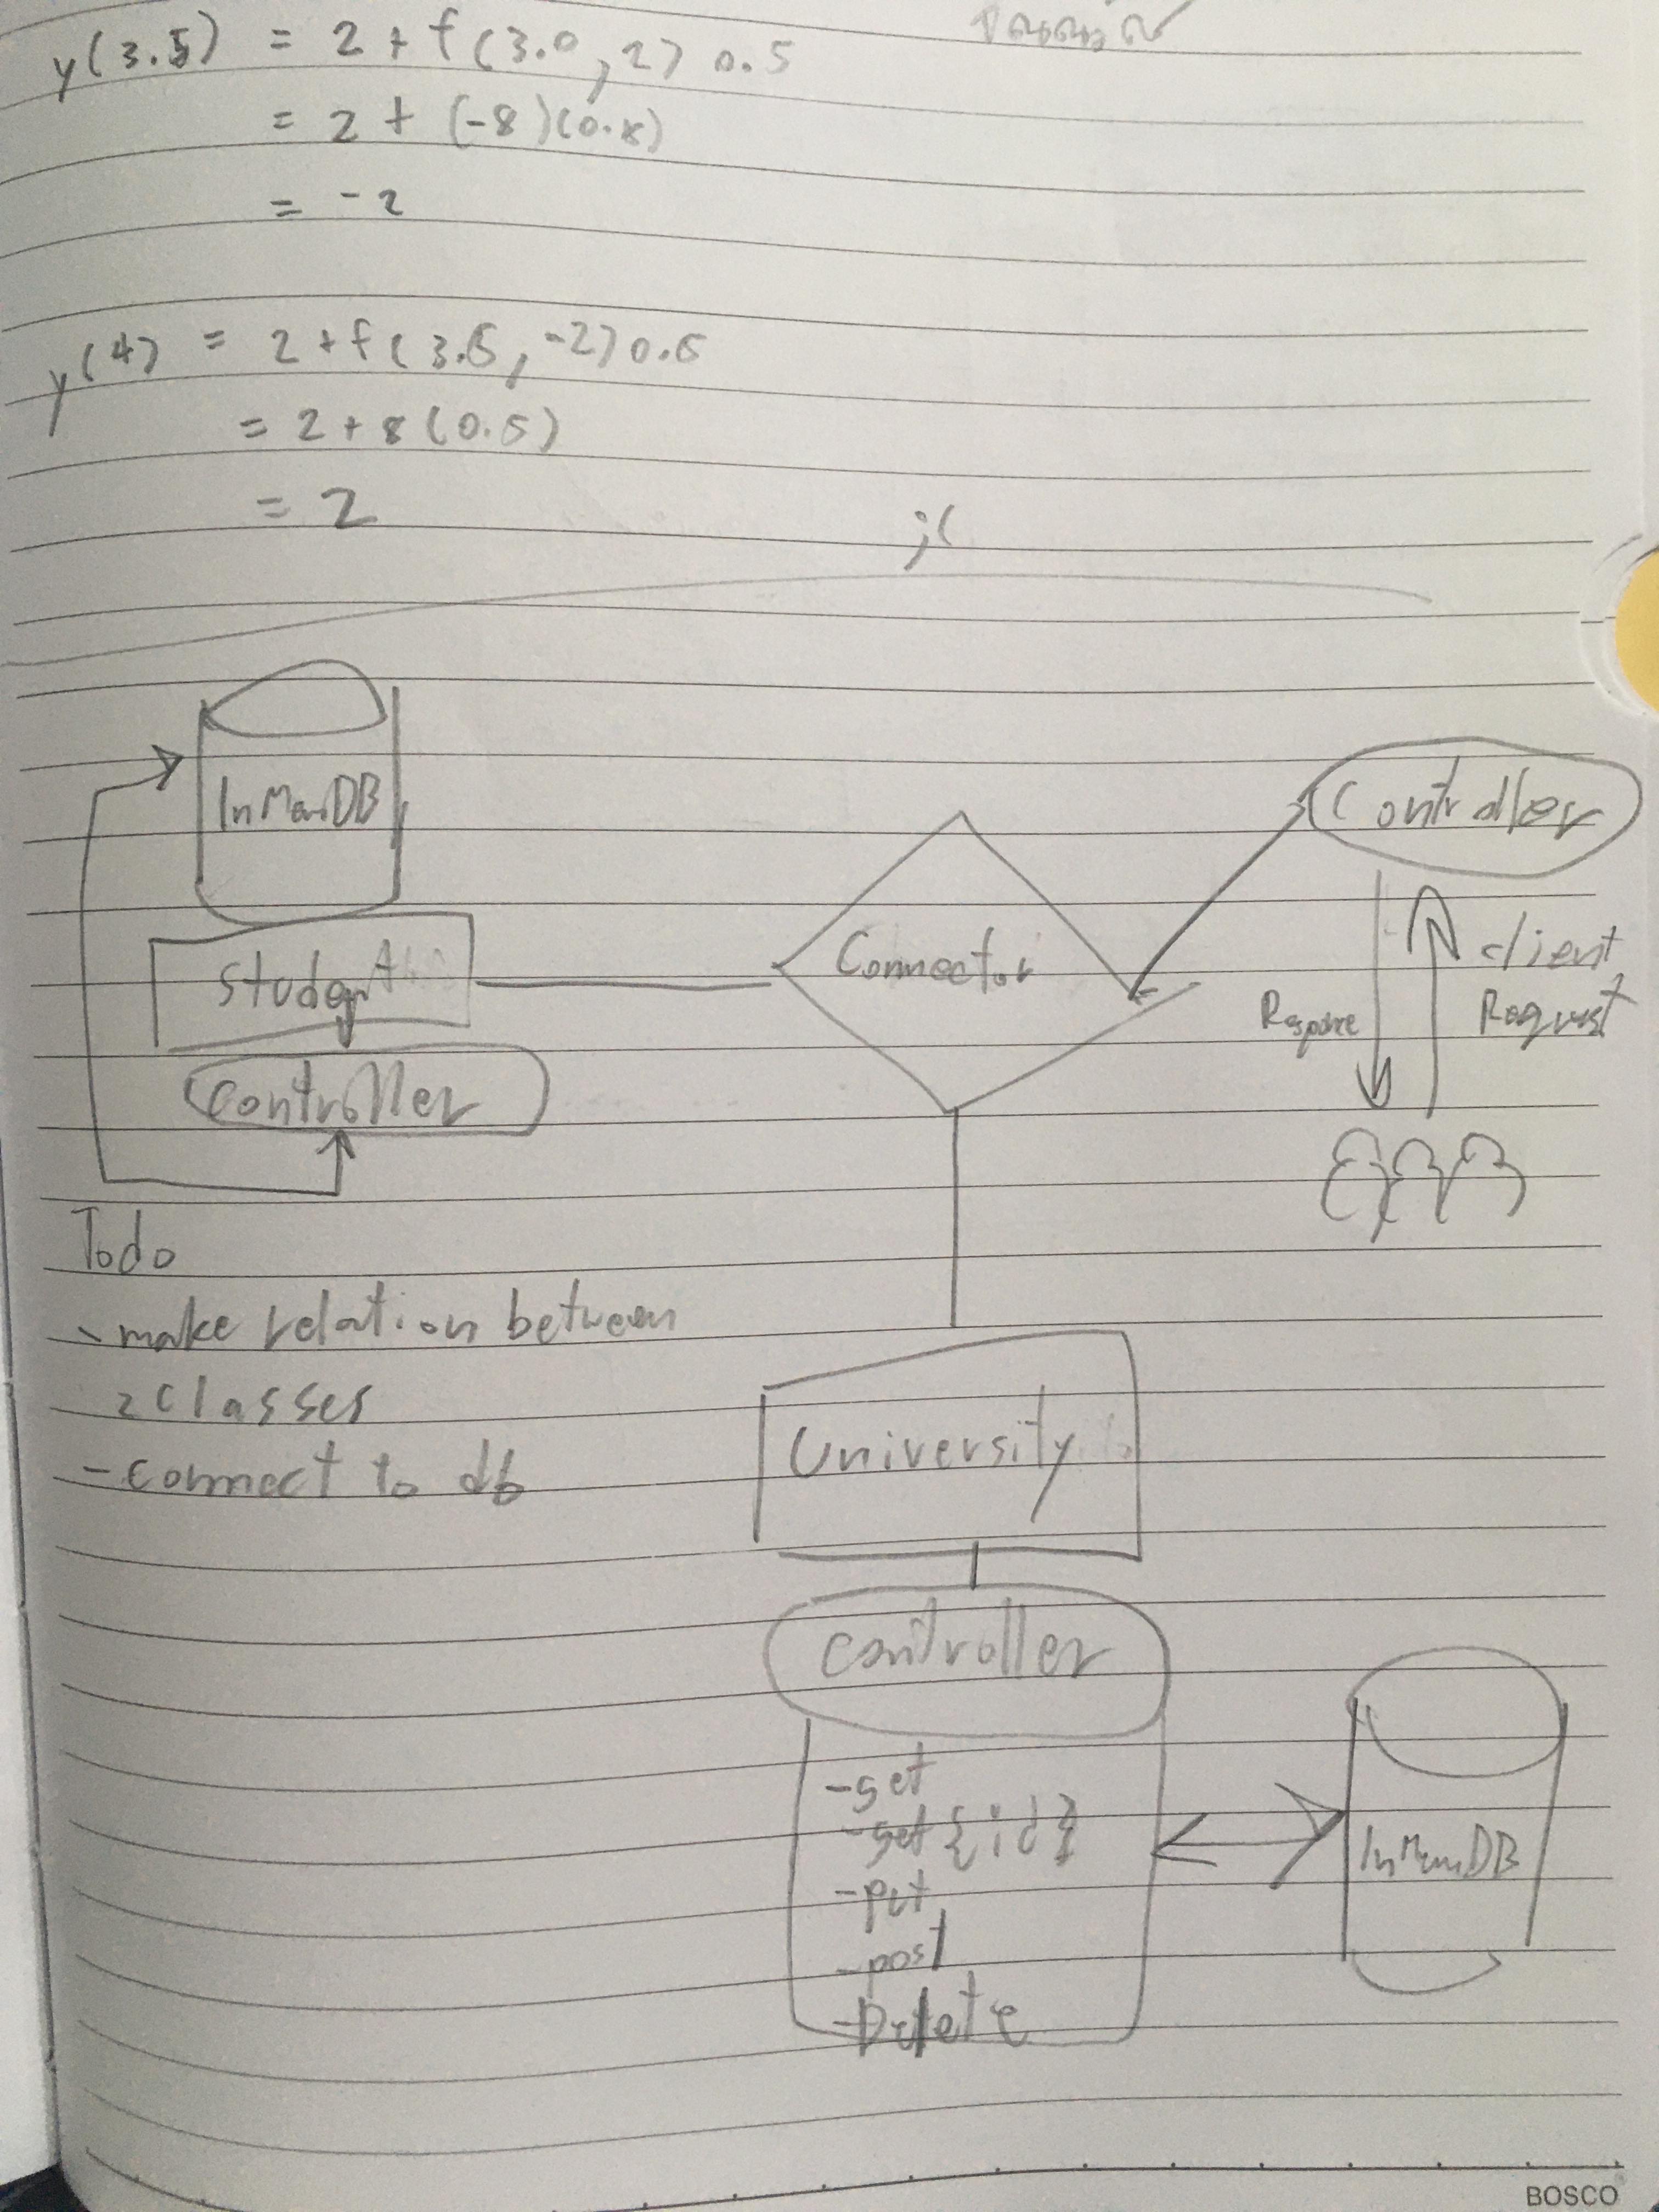 y(3.5) = 2 + f(3.0, 2) 0.5
= 2 + (-8)(0.5)
= -2
y(4) = 2 + f(3.5, -2) 0.5
= 2 + 8(0.5)
= 2
;(
InMemDB
Controller
Connector
Student
Response
client
Request
controller
Todo
- make relation between
2 classes
- connect to db
University
controller
- get
- get {id}
- put
- post
- Delete
InMemDB
BOSCO